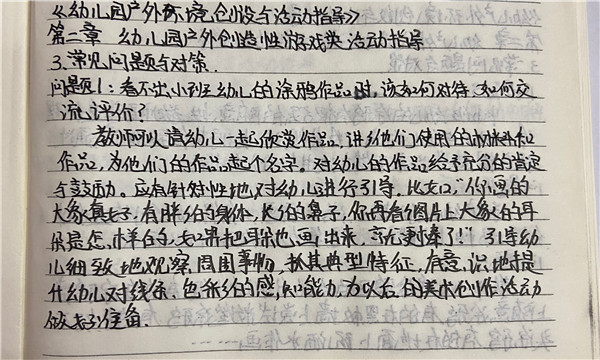 《幼儿园户外环境创设与活动指导》
第二章 幼儿园户外创造性游戏类活动指导
3、常见问题与对策.
问题1：看不出小班幼儿的涂鸦作品时，该如何对待、如何交
流、评价？
教师可以请幼儿一起欣赏作品，讲述他们使用的材料和
作品，为他们的作品起个名字。对幼儿的作品给予充分的肯定
与鼓励。应有针对性地对幼儿进行引导。比如：“你画的
大象真好，有胖胖的身体，长长的鼻子，你再看看图片上大象的耳
朵是怎么样的，如果把耳朵也画出来，就更棒了！”引导幼
儿细致地观察周围事物，抓其典型特征，有意识地提
升幼儿对线条、色彩的感知能力，为以后的美术创作活动
做好准备.